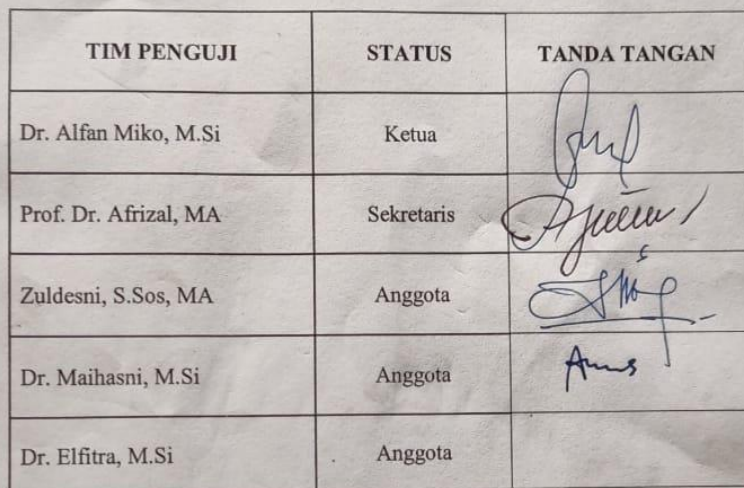 TIM PENGUJI STATUS TANDA TANGAN
Dr. Alfan Miko, M.Si Ketua
Prof. Dr. Afrizal, MA Sekretaris
Zuldesni, S.Sos, MA Anggota
Dr. Maihasni, M.Si Anggota
Dr. Elfitra, M.Si Anggota